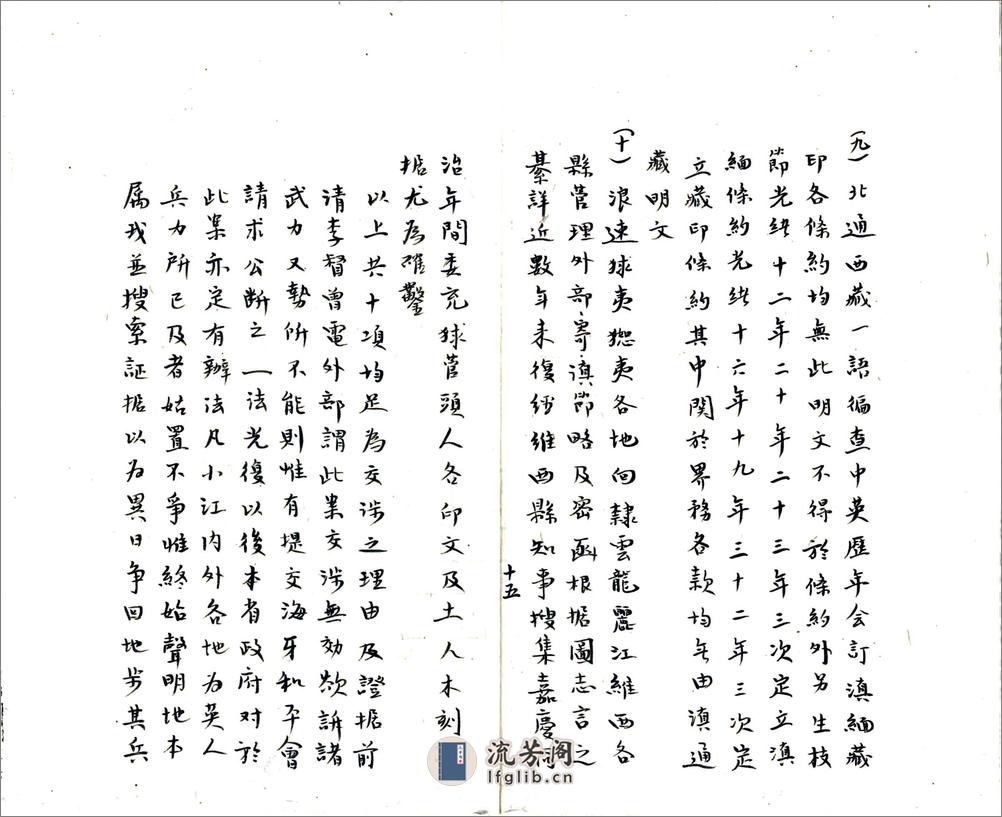 (九)北通西藏一語徧查中英歷年会訂滇緬藏
印各條約均無此明文不得於條約外另生枝
節光緒十二年二十年二十三年三次定立滇
緬條約光緒十六年十九年三十二年三次定
立藏印條約其中関於界務各款均無由滇通
藏明文
(十)浪速狱夷怒夷各地向隷雲龍麗江維西各
縣管理外部寄滇節略及密函根据圖志言之
綦詳近數年来復經維西縣知事搜集嘉慶同
十五
治年間委充狱管頭人各印文及土人木刻
据尤為確鑿
以上共十項均足為交涉之理由及證据前
請李督曾電外部謂此案交涉無効欲訴諸
武力又勢所不能則惟有提交海牙和平會
請求公断之一法光復以後本省政府对於
此案亦定有辦法凡小江内外各地为英人
兵力所已及者姑置不爭惟終始聲明地本
属我並搜索証据以为異日争回地步其兵
流芳阁
lfglib.cn